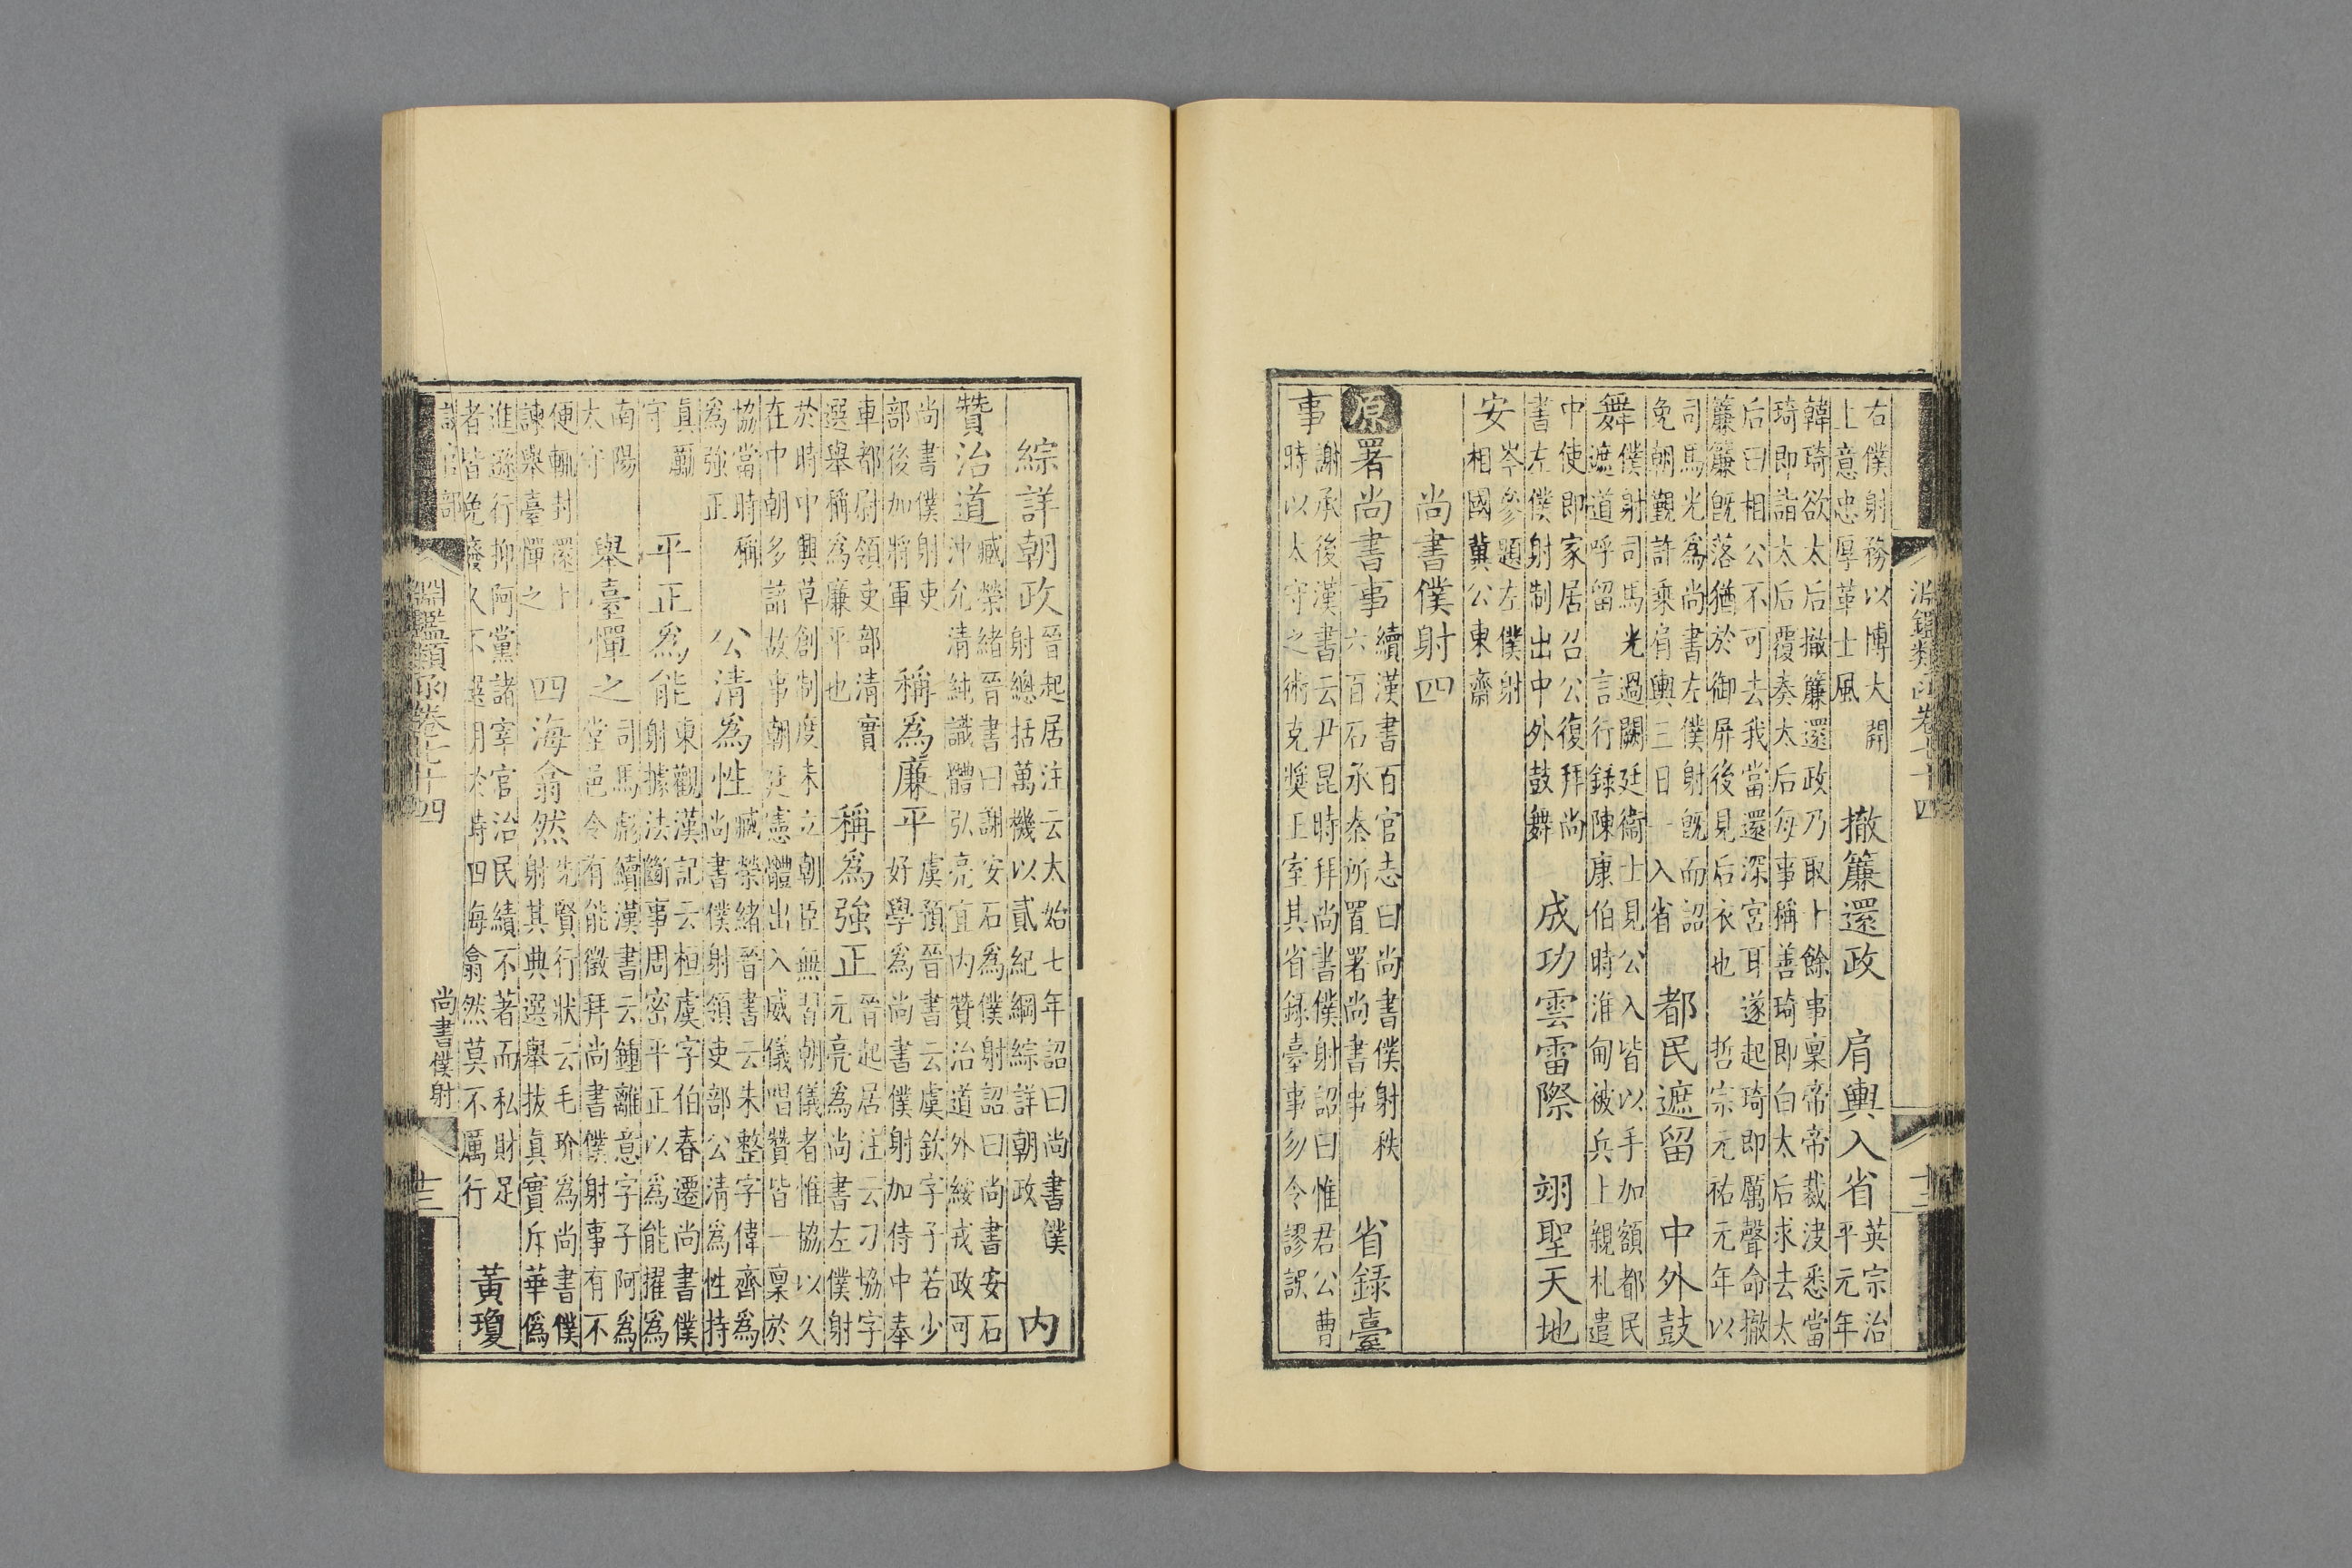 淵鑑類函卷七十四
十二
右僕射務以博大開
上意忠厚革士風
撤簾還政 肩輿入省
英宗治
平元年
韓琦欲太后撤簾還政乃取十餘事稟帝帝裁決悉當
琦即詣太后覆奏太后每事稱善琦即白太后求去太
后曰相公不可去我當還深宮耳遂起琦即厲聲命撤
簾簾旣落猶於御屏後見后衣也 哲宗元祐元年以
司馬光爲尚書左僕射旣而詔
免朝覲許乘肩輿三日一入省
都民遮留 中外鼓
舞
僕射司馬光過闕廷衞士見公入皆以手加額都民
遮道呼留 言行錄陳康伯時淮甸被兵上親札遣
中使即家居召公復拜尚
書左僕射制出中外鼓舞
成功雲雷際 翊聖天地
安
岑參題左僕射
相國冀公東齋
尚書僕射四
原署尚書事
續漢書百官志曰尚書僕射秩
六百石承秦所置署尚書事
省錄臺
事
謝承後漢書云尹昆時拜尚書僕射詔曰惟君公曹
時以太守之術克奬王室其省錄臺事勿令謬誤
綜詳朝政
晉起居注云太始七年詔曰尚書僕
射總括萬機以貳紀綱綜詳朝政
內
贊治道
臧榮緒晉書曰謝安石爲僕射詔曰尚書安石
沖允清純識體弘亮宜內贊治道外綏戎政可
尚書僕射吏
部後加將軍
稱爲廉平
虞預晉書云虞欽字子若少
好學爲尚書僕射加侍中奉
車都尉領吏部清實
選舉稱爲廉平也
稱爲強正
晉起居注云刁協字
元亮爲尚書左僕射
於時中興草創制度未立朝臣無習朝儀者惟協以久
在中朝多諳故事朝廷憲體出入威儀唱贊皆一稟於
協當時稱
爲強正
公清爲性
臧榮緒晉書云朱整字偉齊爲
尚書僕射領吏部公清爲性持
眞勵
守
平正爲能
東觀漢記云桓虞字伯春遷尚書僕
射據法斷事周密平正以爲能擢爲
南陽
太守
舉臺憚之
司馬彪續漢書云鍾離意字子阿爲
堂邑令有能徵拜尚書僕射事有不
便輒封還上
諫舉臺憚之
四海翕然
先賢行狀云毛玠爲尚書僕
射其典選舉拔眞實斥華僞
進遜行抑阿黨諸宰官治民績不著而私財足
者皆免廢久不選用於時四海翕然莫不厲行
黃瓊
設官部
淵鑑類函卷七十四
尚書僕射
十三